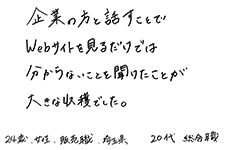 企業の方と話すことで
Webサイトを見るだけでは
分からないことを聞けたことが
大きな収穫でした。
24歳.女性.販売職.埼玉県 20代 総合職